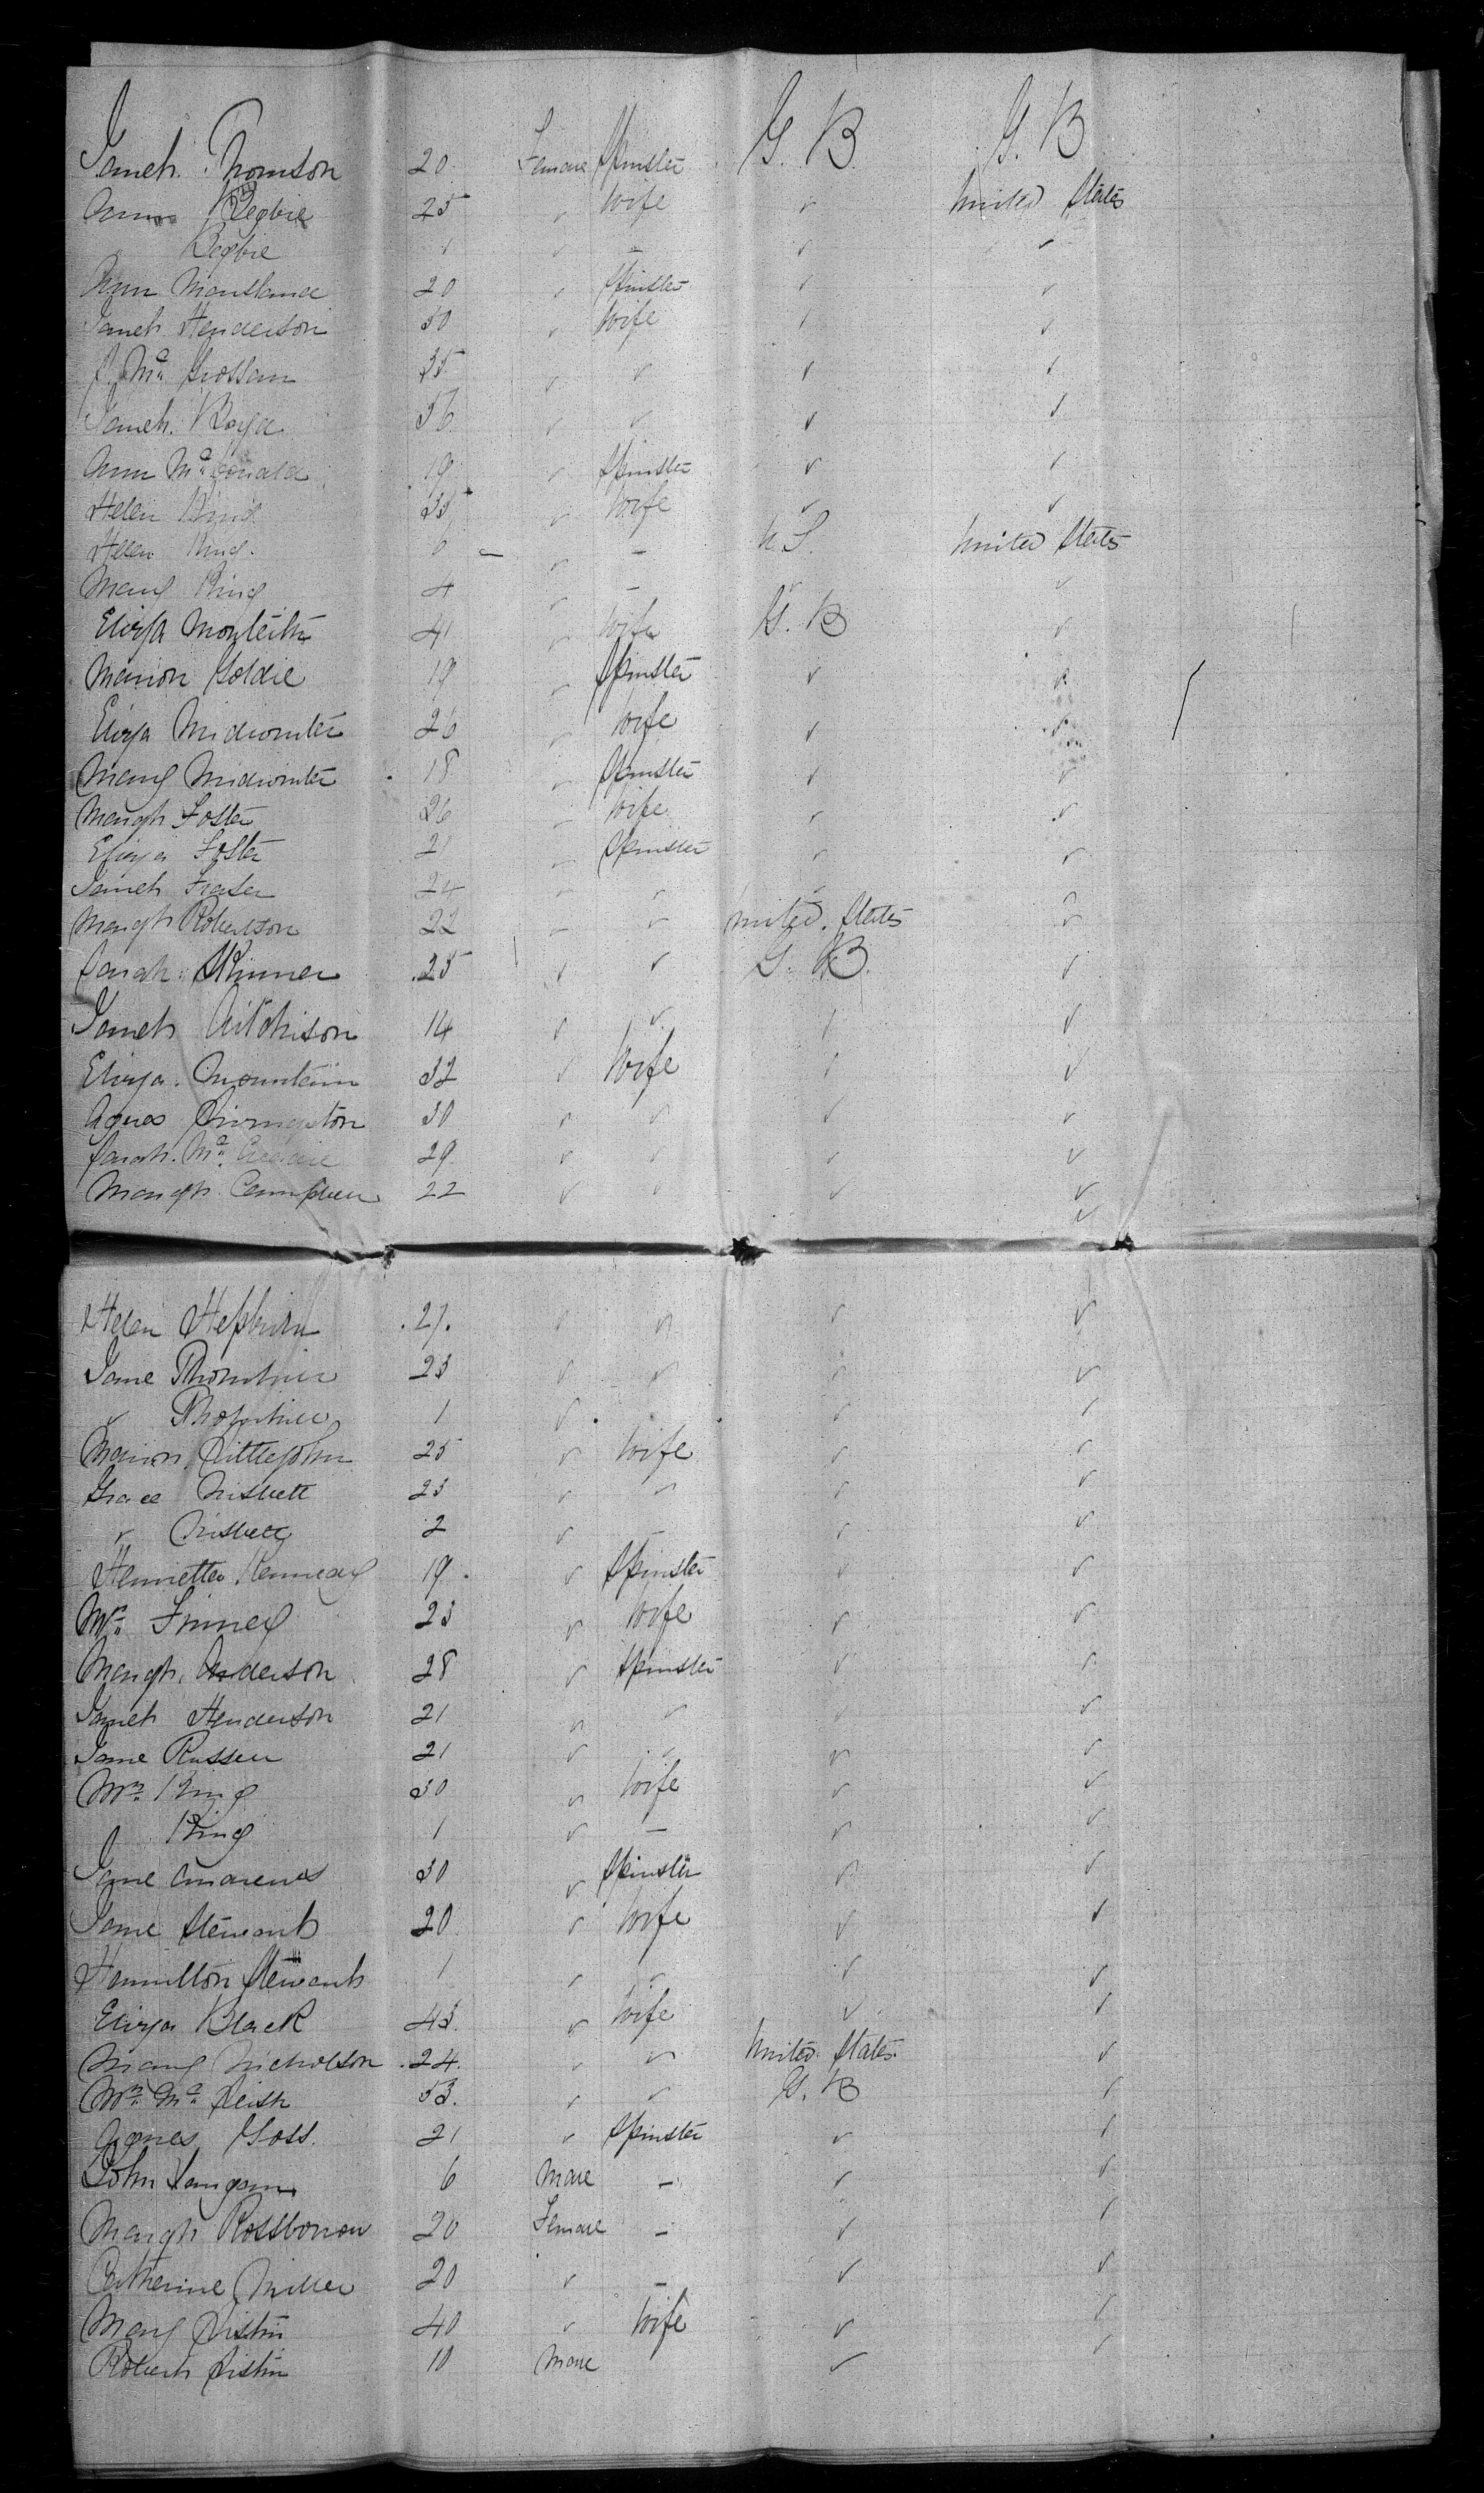 Janet Thomson 20 Female Spinster G. B G. B
Begbie 25 " Wife " United States
Begbie 1 " — " "
Ann 20 " Spinster " "
Janet Henderson 30 " Wife " "
35 " " " "
Janet Boyd 36 " " " "
Ann McDonald 19 " Spinster " "
Helen King 35 " Wife " "
Helen King 0 — " — U. S. United States
Mary King 4 " — " "
Eliza Monteith 41 " Wife G. B "
Marion Goldie 19 " Spinster " "
Eliza Midwinter 26 " Wife " "
Mary Midwinter 18 " Spinster " "
Margt Foster 26 " Wife " "
Eliza Foster 21 " Spinster " "
Janet Fraser 24 " " " "
Margt Robertson 22 " " United States "
Sarah Skinner 25 " " G. B. "
Janet Aitchison 14 " " " "
Eliza Mountain 32 " Wife " "
Agnes Livingston 30 " " " "
Sarah Mc 29 " " " "
Margt Campbell 22 " " " "
Helen Hepburn 27 " " " "
Jane Thornhill 23 " " " "
" Thornhill 1 " " "
Marion Littlejohn 25 " Wife " "
Grace Nisbett 23 " " " "
" Nisbett 2 " — " "
Henrietta Kennedy 19 " Spinster " "
Mrs Finney 23 " Wife " "
Margt Anderson 28 " Spinster " "
Janet Henderson 21 " " " "
Jane Russell 21 " " " "
Mrs King 30 " Wife " "
King 1 " — " "
Jane Andrews 30 " Spinster " "
Jane Stewart 20 " Wife " "
Hamilton Stewart 1 " " " "
Eliza Black 43 " Wife " "
Mary Nicholson 24 " " United States "
Mrs McLeish 53 " " G. B "
Agnes Goss 21 " Spinster " "
John 6 Male — " "
Margt Rossborrow 20 Female — " "
Catherine Miller 20 " — " "
Mary Listin 40 " Wife " "
Robert Listin 10 Male " "